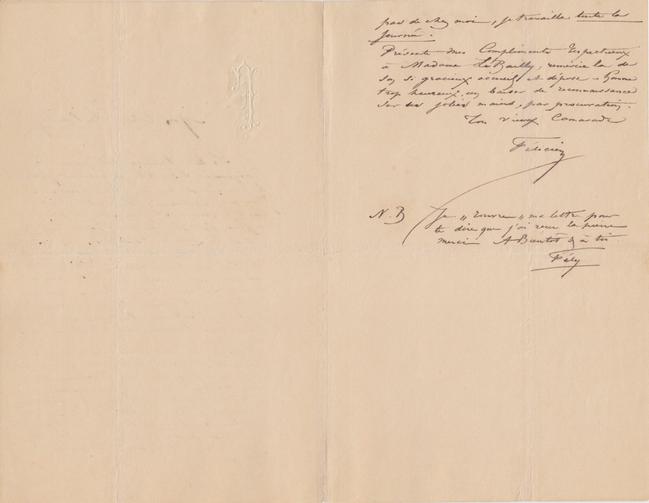 pas de chez moi, je travaille toute la
journée.
Présente mes Compliments respectueux
à Madame Le Bailly, remércie la de
son si gracieux accueil, et dépose, homme
trop heureux, un baiser de reconnaissance
sur ses jolies mains, par procuration.
Ton vieux Camarade
Félicien
N.B Je „ rouvre „ ma lettre pour
te dire que j'ai reçu la pierre
merci A Bautot & à toi
Fély